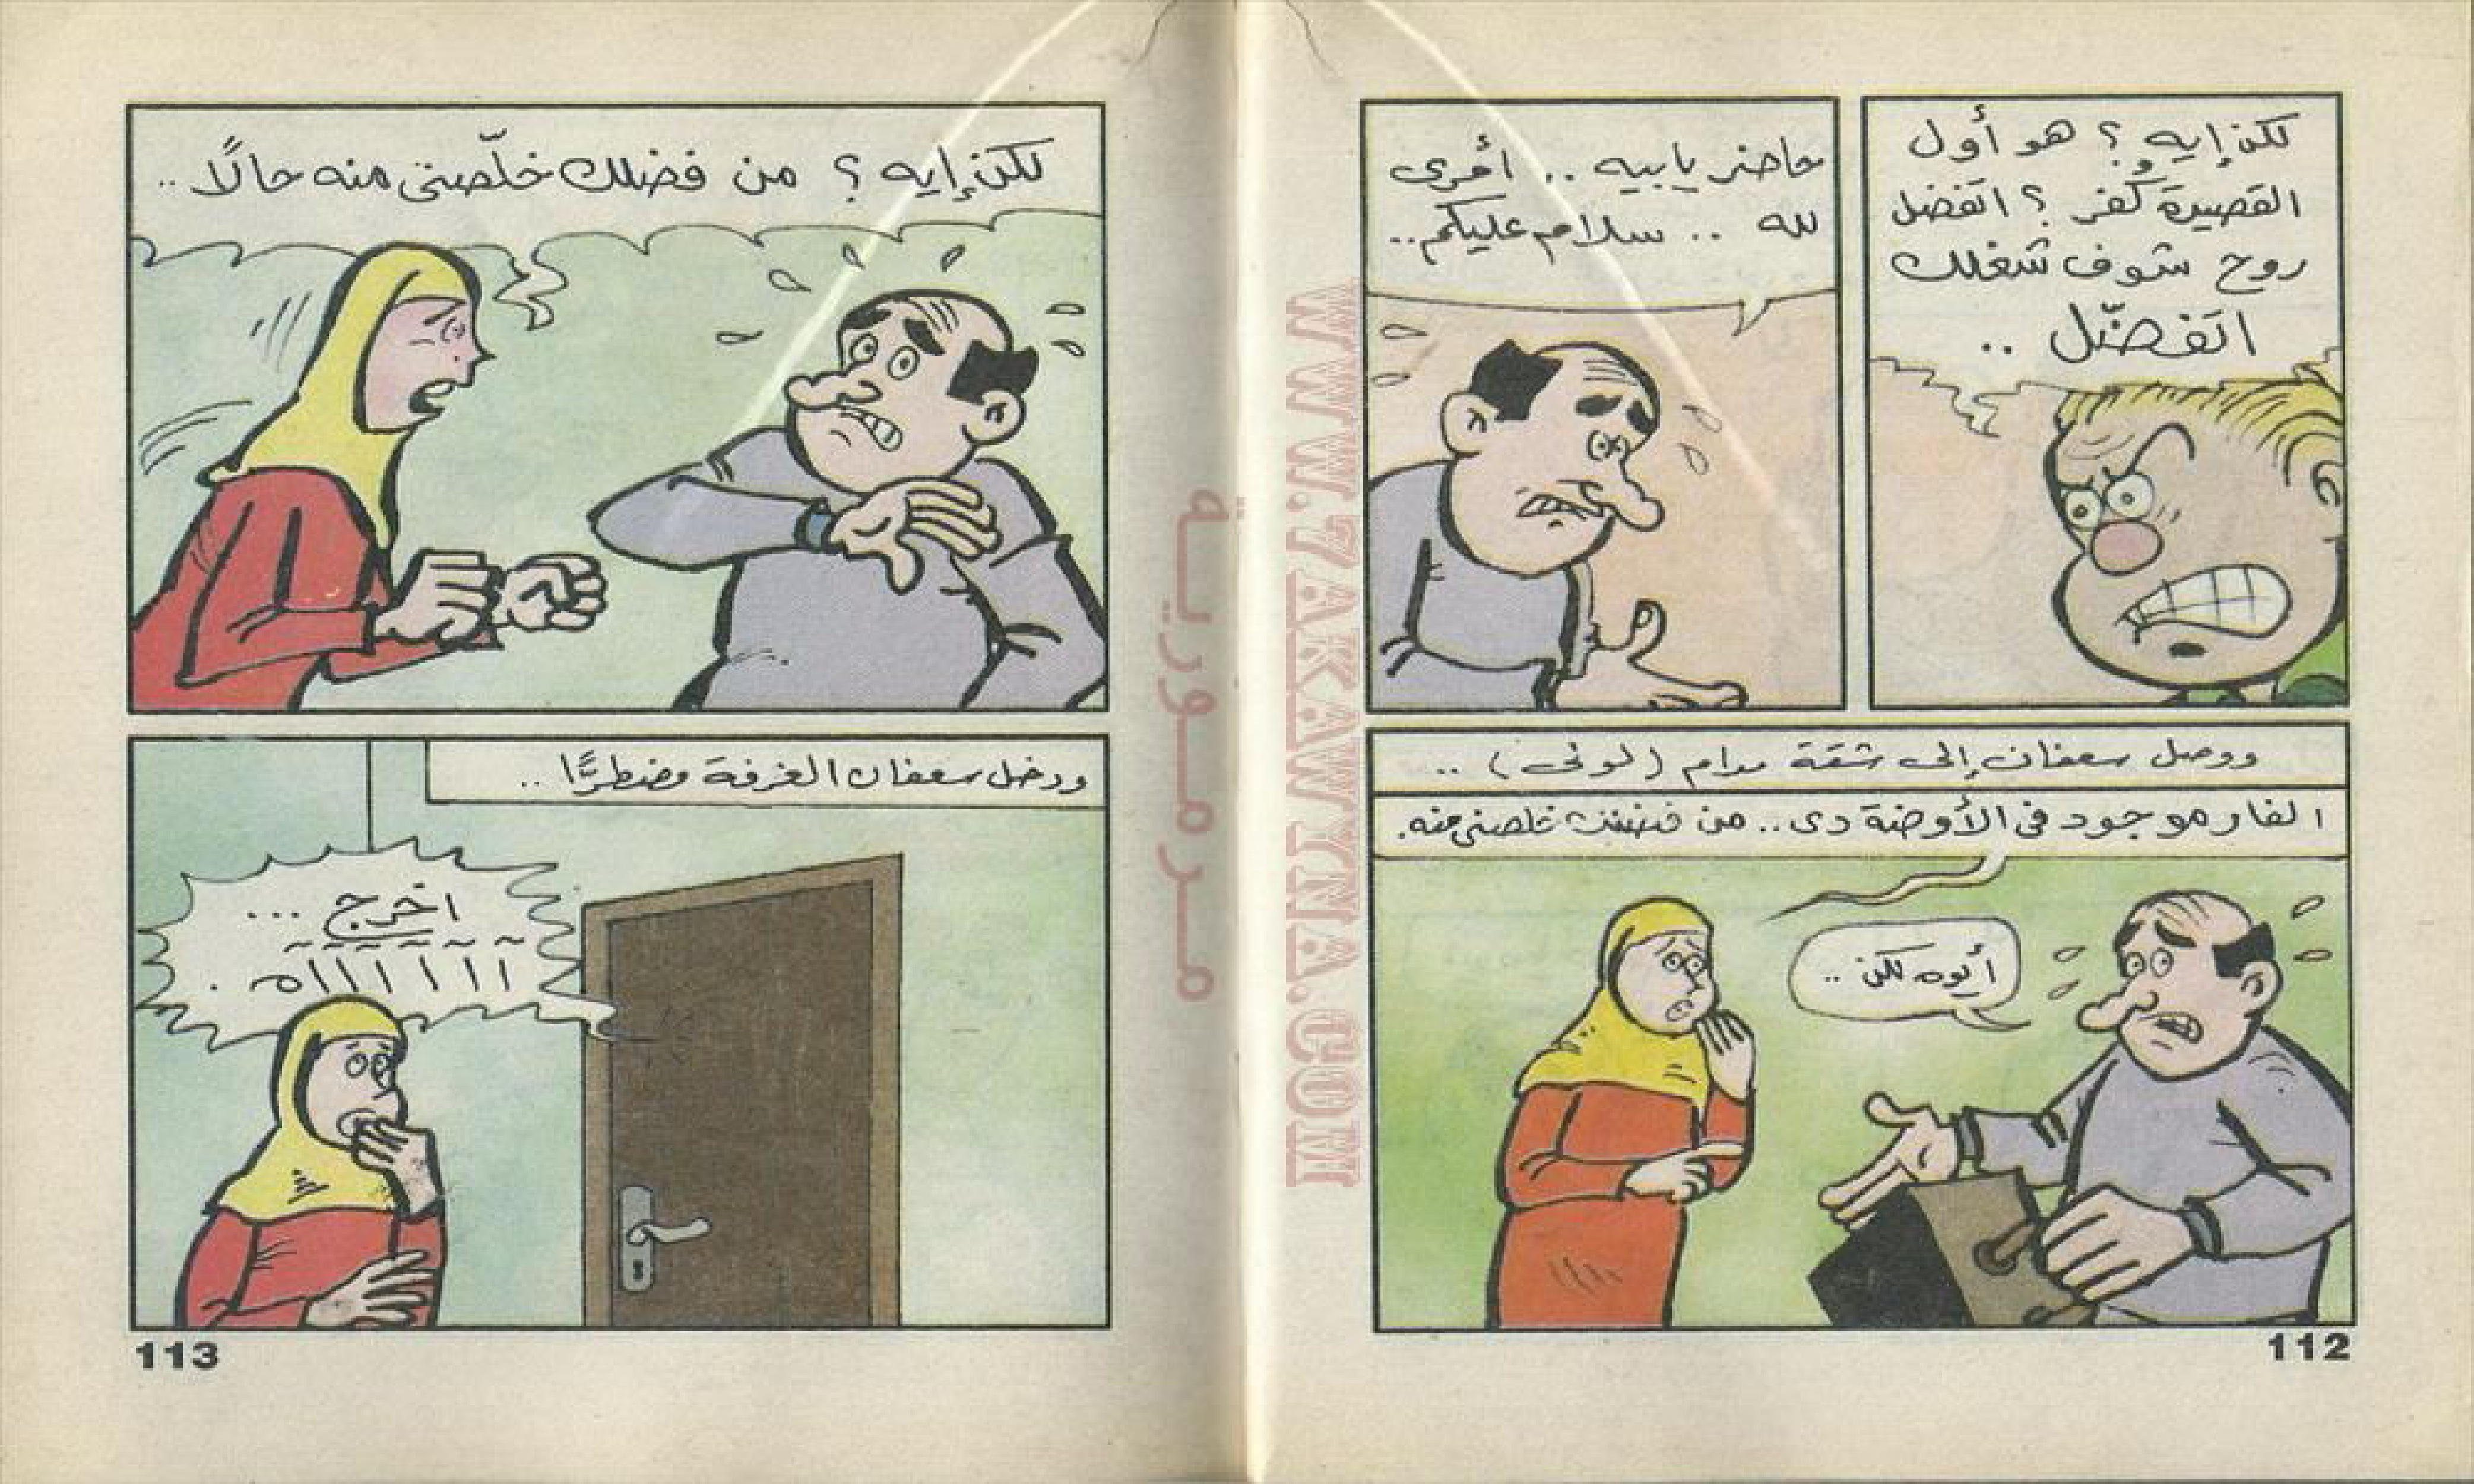 لكن إيه ؟ هو أول
القصيدة كُفر ؟ اتفضل
روح شوف شغلك
اتفضّل ..
حاضر يا بيه .. أمرى
لله .. سلام عليكم ..
ووصل سعفان إلى شقة مدام (لولى) ..
الفار موجود فى الأوضة دى .. من فضلك خلصنى منه.
أيوه لكن ..
112
لكن إيه ؟ من فضلك خلّصنى منه حالًا ..
ودخل سعفان الغرفة مضطرًّا ..
اخرج ...
آآآآآآه .
113
WWW.7AKAWYNA.COM
مرمورية